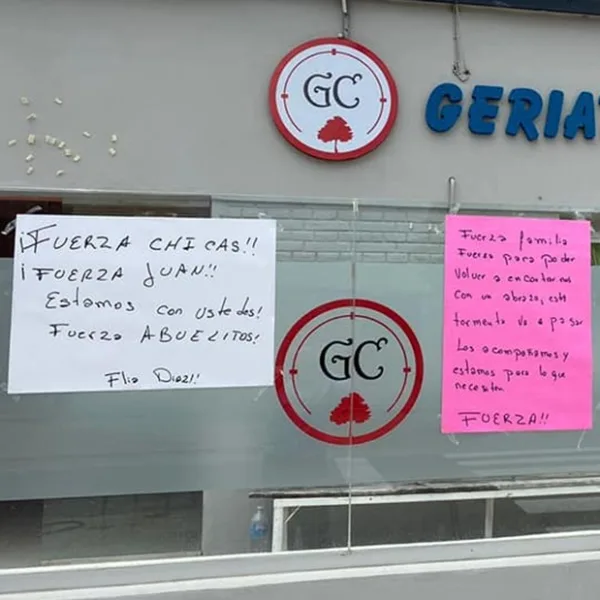 GC
GERIA
¡FUERZA CHICAS!!
¡FUERZA JUAN!!
Estamos con ustedes!
Fuerza ABUELITOS!
Flia Diaz!!
GC
Fuerza familia
Fuerza para poder
volver a encontrarnos
con un abrazo, este
tormento va a pasar
Los acompañamos y
estamos para lo que
necesiten
FUERZA!!